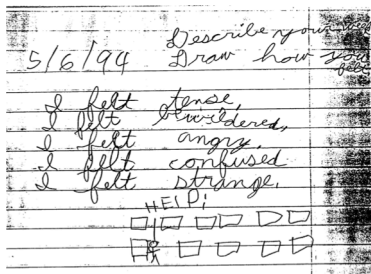 Describe your
5/6/94 Draw how you
felt
I felt tense,
I felt bewildered,
I felt angry.
I felt confused
I felt strange.
HELP!